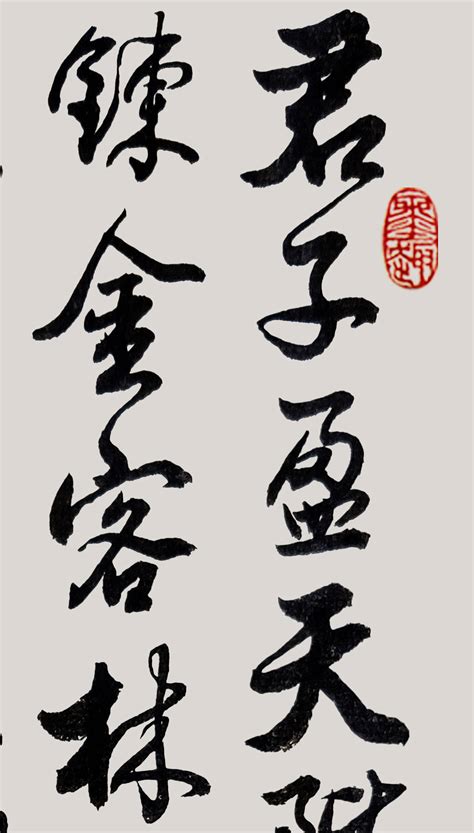 君子盈天
鍊金客林